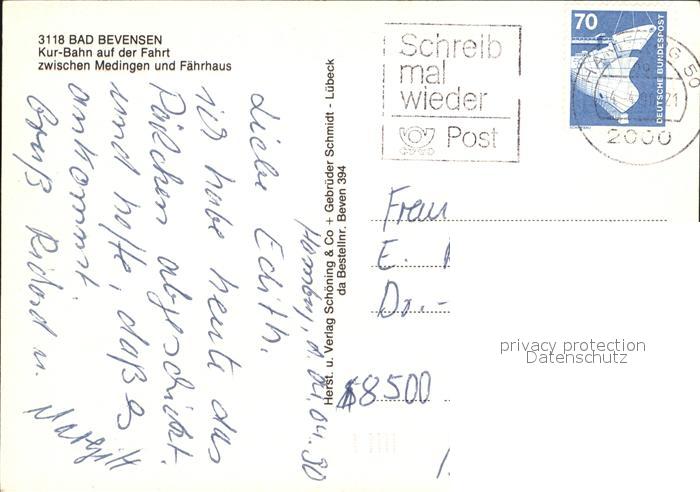 3118 BAD BEVENSEN
Kur-Bahn auf der Fahrt
zwischen Medingen und Fährhaus
Schreib
mal
wieder
Post
70
DEUTSCHE BUNDESPOST
HAMBURG 50
2000
Herst. u. Verlag Schöning & Co + Gebrüder Schmidt - Lübeck
da Bestellnr. Beven 394
Hamburg, d.
Liebe Edith.
ich habe heute das
Päckchen abgeschickt.
und hoffe, daß es
ankommt
Gruß Richard u.
Margitt
Frau
E.
Dr.-
8500
privacy protection
Datenschutz